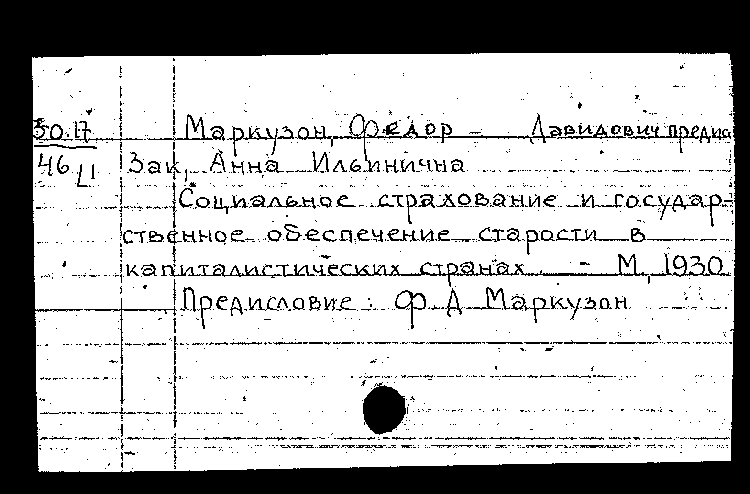 30.17 Маркузон, Федор – Давидович предис
46 Зак, Анна Ильинична
Социальное страхование и государ-
ственное обеспечение старости в
капиталистических странах. – М., 1930
Предисловие: Ф. Д. Маркузон